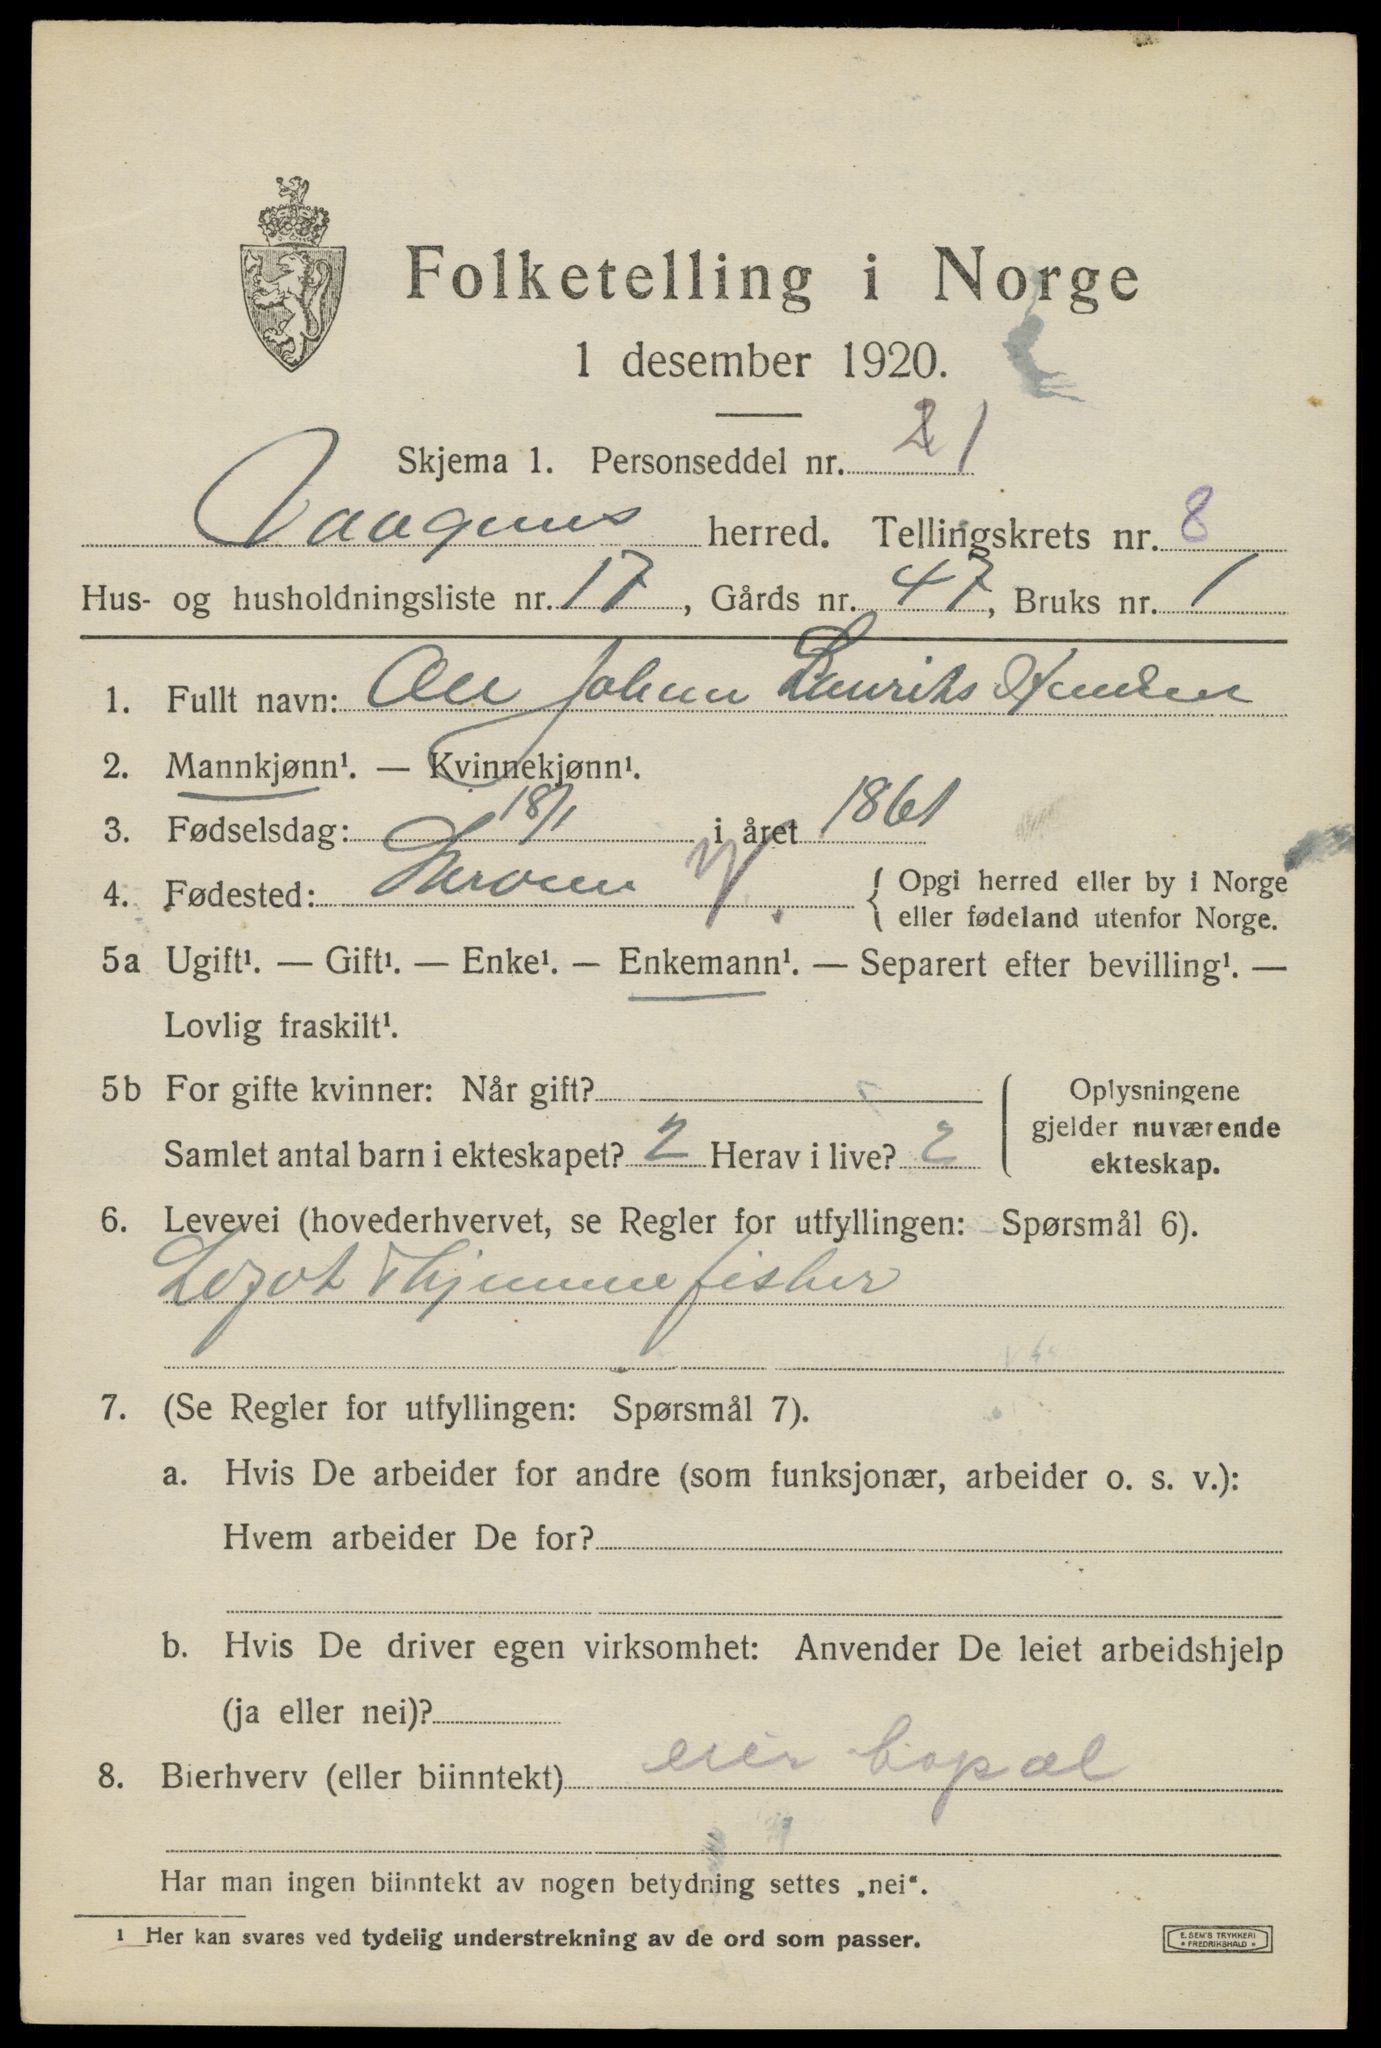 Folketelling i Norge
1 desember 1920.
Skjema 1. Personseddel nr. 21
Vaagens herred. Tellingskrets nr. 8
Hus- og husholdningsliste nr. 17, Gårds nr. 47, Bruks nr. 1
1. Fullt navn: Ole Johan Lauriths
2. Mannkjønn¹. — Kvinnekjønn¹.
3. Fødselsdag: 18/1 i året 1861
4. Fødested: { Opgi herred eller by i Norge
eller fødeland utenfor Norge.
5a Ugift¹. — Gift¹. — Enke¹. — Enkemann¹. — Separert efter bevilling¹. —
Lovlig fraskilt¹.
5b For gifte kvinner: Når gift?
Samlet antal barn i ekteskapet? 2 Herav i live? 2
Oplysningene
gjelder nuværende
ekteskap.
6. Levevei (hovederhvervet, se Regler for utfyllingen: Spørsmål 6).
Lofot & hjemmefisker
7. (Se Regler for utfyllingen: Spørsmål 7).
a. Hvis De arbeider for andre (som funksjonær, arbeider o. s. v.):
Hvem arbeider De for?
b. Hvis De driver egen virksomhet: Anvender De leiet arbeidshjelp
(ja eller nei)?
8. Bierhverv (eller biinntekt) eier bopæl
Har man ingen biinntekt av nogen betydning settes „nei“.
¹ Her kan svares ved tydelig understrekning av de ord som passer.
E. SEM'S TRYKKERI
• FREDRIKSHALD •